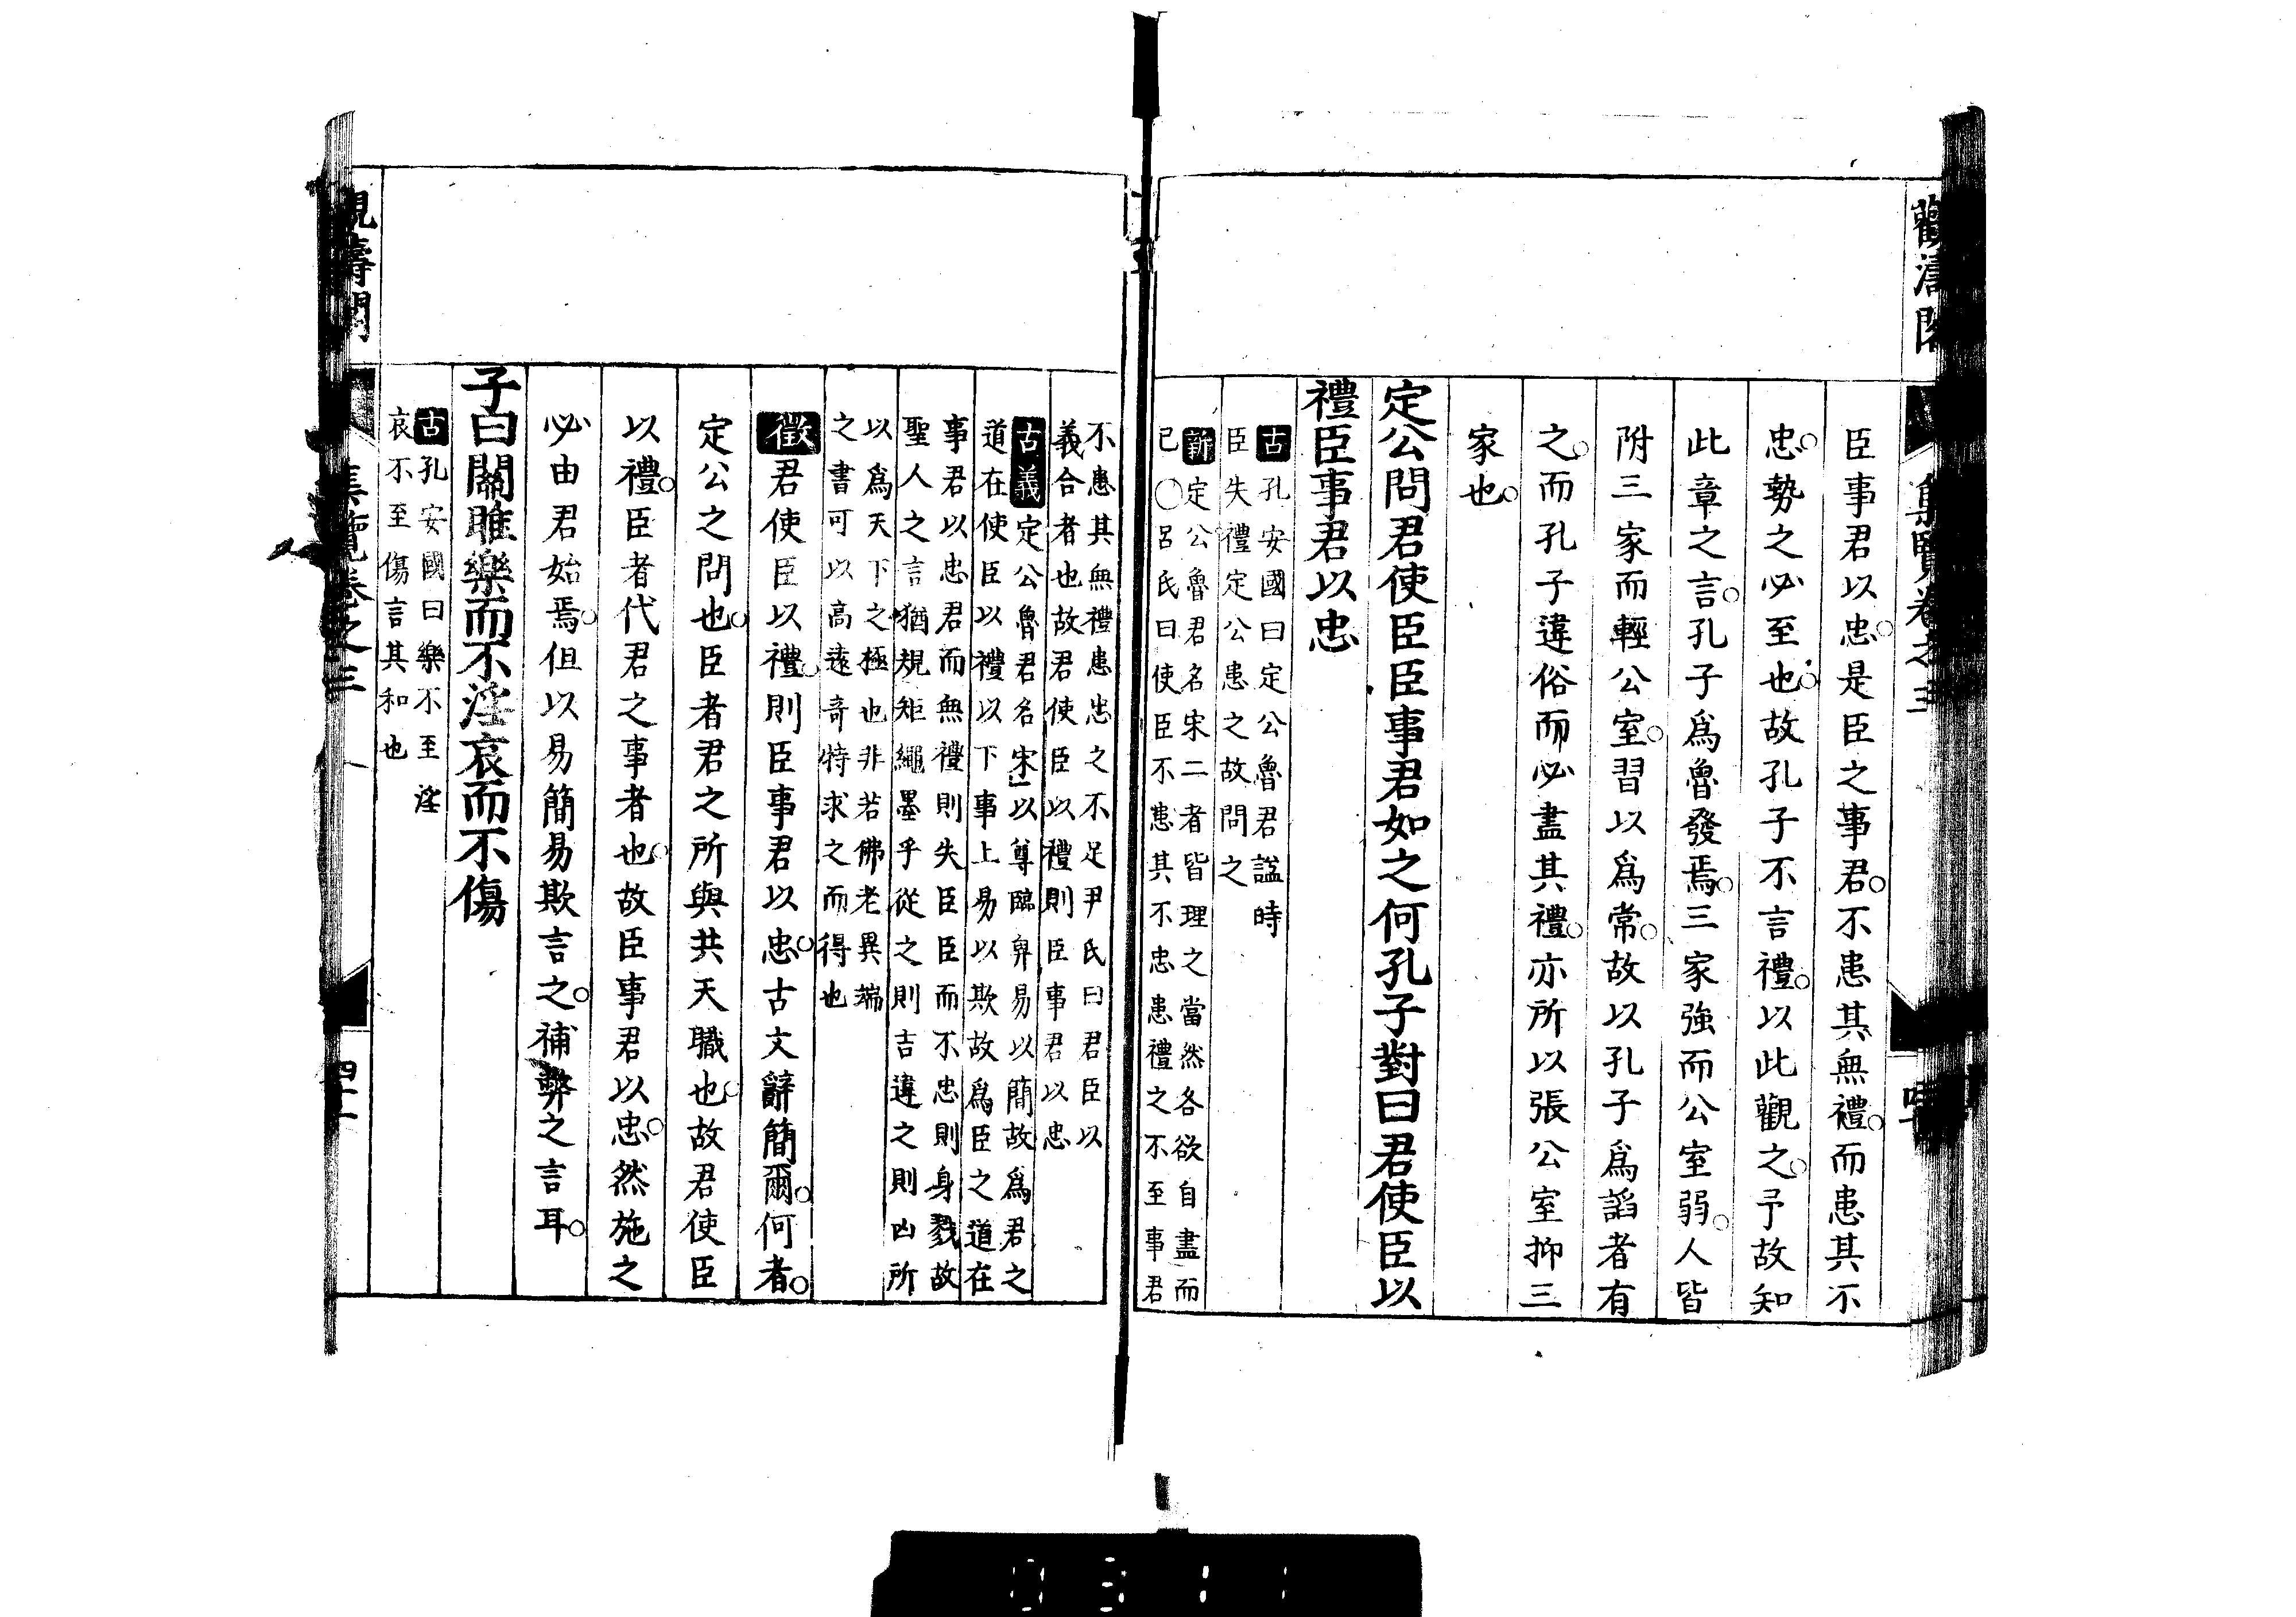 觀濤閣
集覽卷之三
臣事君以忠。是臣之事君。不患其無禮。而患其不
忠。勢之必至也。故孔子不言禮。以此觀之。予故知
此章之言。孔子爲魯發焉。三家強而公室弱。人皆
附三家而輕公室。習以爲常。故以孔子爲諂者有
之。而孔子違俗而必盡其禮。亦所以張公室抑三
家也。
定公問君使臣臣事君如之何孔子對曰君使臣以
禮臣事君以忠
古孔安國曰定公魯君諡時
臣失禮定公患之故問之
新定公魯君名宋二者皆理之當然各欲自盡而
已○呂氏曰使臣不患其不忠患禮之不至事君
不患其無禮患忠之不足尹氏曰君臣以
義合者也故君使臣以禮則臣事君以忠
古義定公魯君名宋」以尊臨卑易以簡故爲君之
道在使臣以禮以下事上易以欺故爲臣之道在
事君以忠君而無禮則失臣臣而不忠則身戮故
聖人之言猶規矩繩墨乎從之則吉違之則凶所
以爲天下之極也非若佛老異端
之書可以高遠奇特求之而得也
徵君使臣以禮。則臣事君以忠。古文辭簡爾。何者。
定公之問也。臣者君之所與共天職也。故君使臣
以禮。臣者代君之事者也。故臣事君以忠。然施之
必由君始焉。但以易簡易欺言之。補弊之言耳。
子曰關雎樂而不淫哀而不傷
古孔安國曰樂不至淫
哀不至傷言其和也
集覽卷之三
四十一